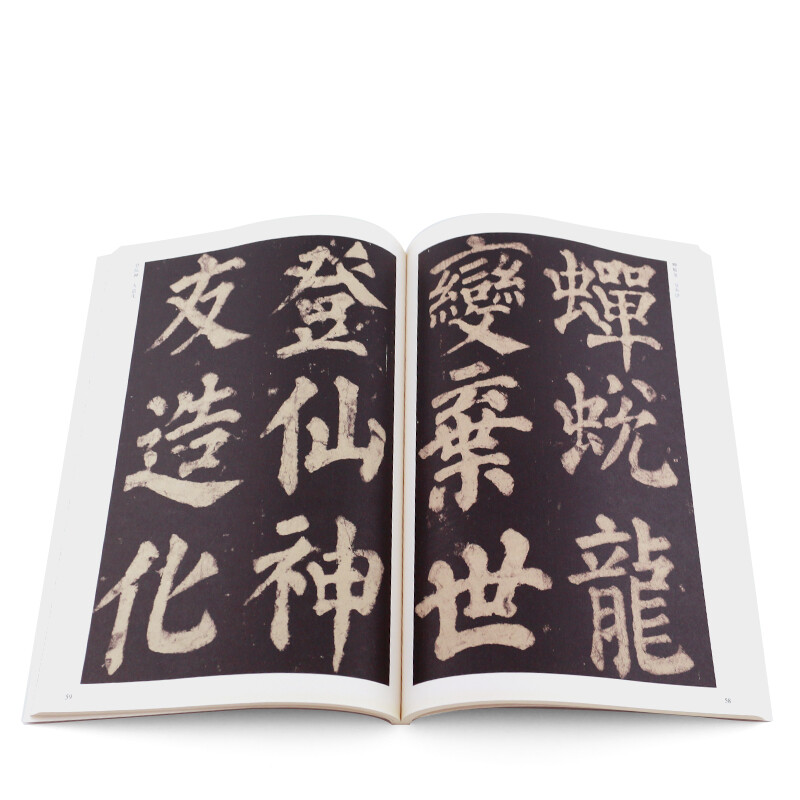 蟬蛻龍
變棄世
登仙神
友造化